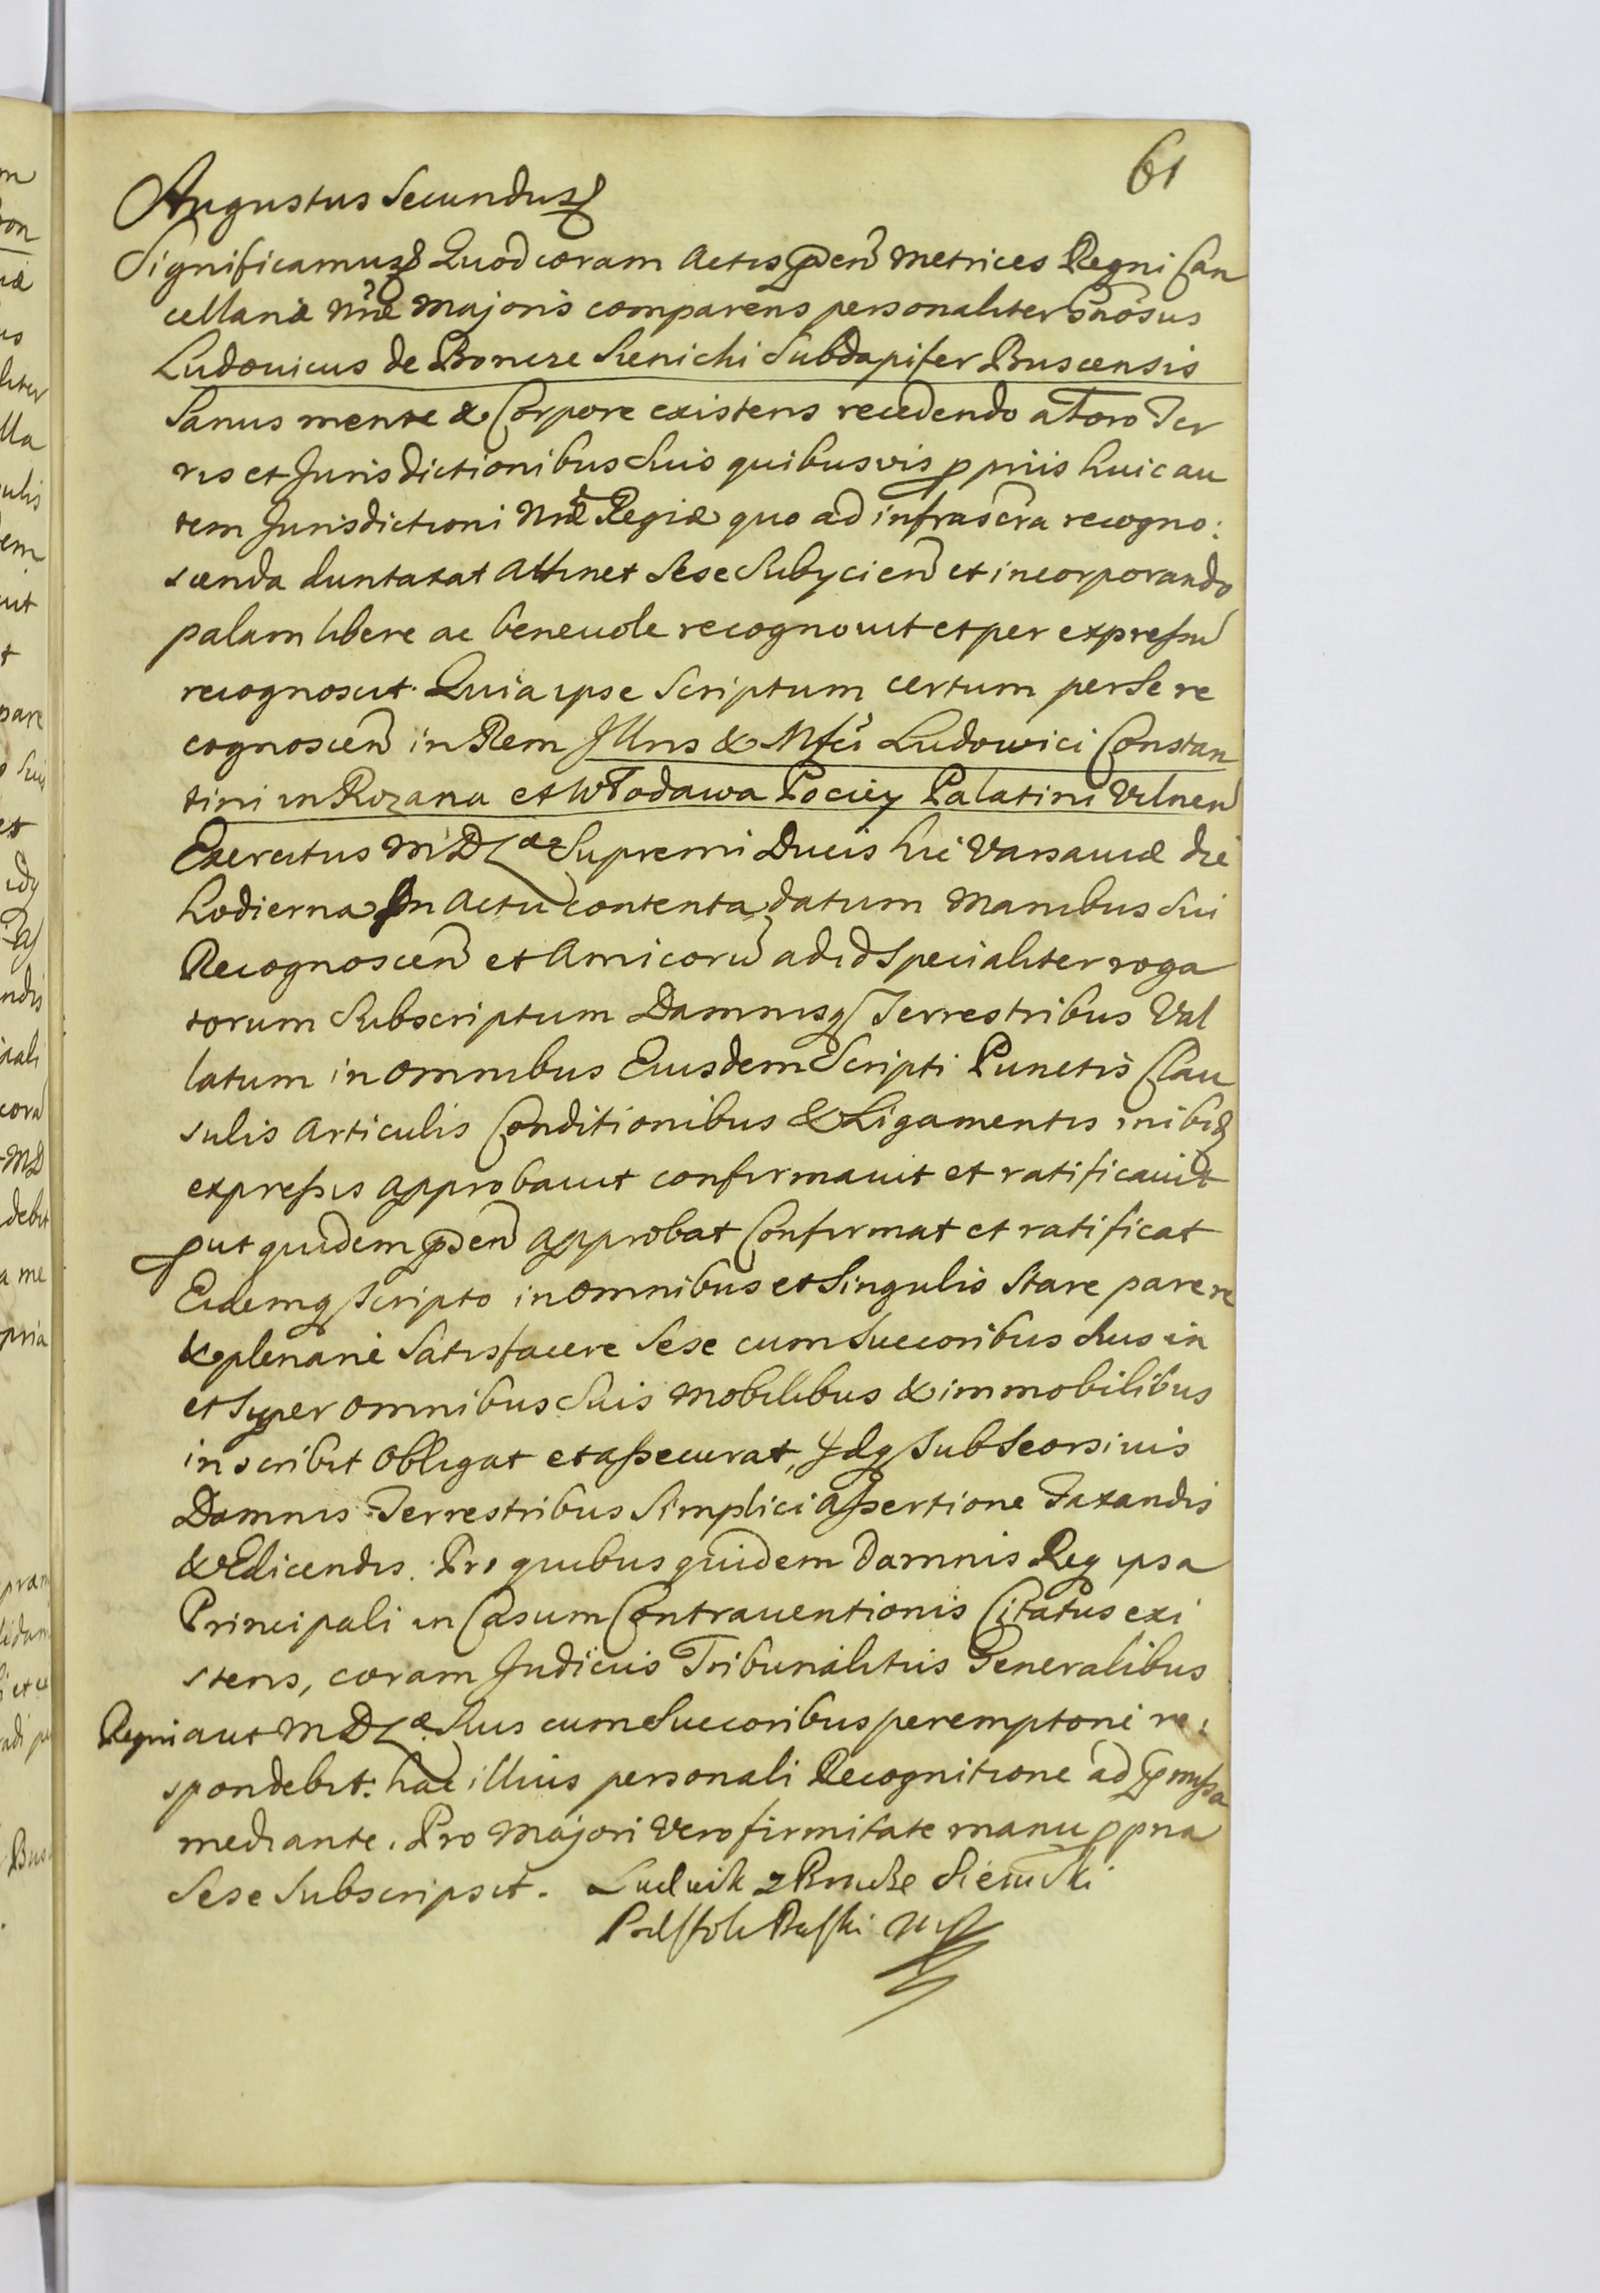 61
Augustus Secundus
Significamus Quod coram Actis pñten Metrices Regni Can
cellariæ Nræ Majoris comparens personaliter Gñosus
Ludovicus de Boncze Sienichi Subdapifer Buscensis
Sanus mente & Corpore existens recedendo a Foro Ter
ris et Jurisdictionibus Suis quibusvis ppriis huic au
tem Jurisdictioni Nræ Regiæ quo ad infrascra recogno:
scenda duntaxat attinet Sese Subyciendo et incorporando
palam libere ac benevole recognovit et per expressum
recognoscit. Quia ipse Scriptum certum per Se re
cognoscen in Rem Illris & Mfci Ludowici Constan
tini in Rozana et Włodawa Pociey Palatini Vilnen
Exercitus M. D. L. Supremi Ducis hic Varsaviæ die
hodierna In Actu contenta datum Manibus Sui
Recognoscen et Amicorũ ad id Specialiter roga
torum Subscriptum Damnisq Terrestribus Val
latum in omnibus Eiusdem Scripti Punctis Clau
sulis Articulis Conditionibus & Ligamentis inibi
expressis approbavit confirmavit et ratificavit
put quidem pñten approbat Confirmat et ratificat
Eidemq Scripto in omnibus et Singulis Stare parere
& plenarie Satisfacere Sese cum Succoribus Suis in
et Super omnibus Suis Mobilibus & immobilibus
inscribit obligat et assecurat, Idq sub Seorsivis
Damnis Terrestribus Simplici assertione Taxandis
& Edicendis. Pro quibus quidem Damnis Req ipsa
Principali in Casum Contraventionis Citatus exi
stens, coram Judiciis Tribunalitiis Generalibus
Regni aut M D L Suis cum Succoribus peremptorie re:
spondebit: hac illius personali Recognitione ad pmissa
mediante. Pro Majori Vero firmitate manu ppria
Sese Subscripsit. Ludwik z Bończe Sienicki
Podstoli Buski mp